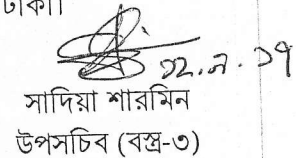 ঢাকা।
১২.৯.১৭
সাদিয়া শারমিন
উপসচিব (বস্ত্র-৩)